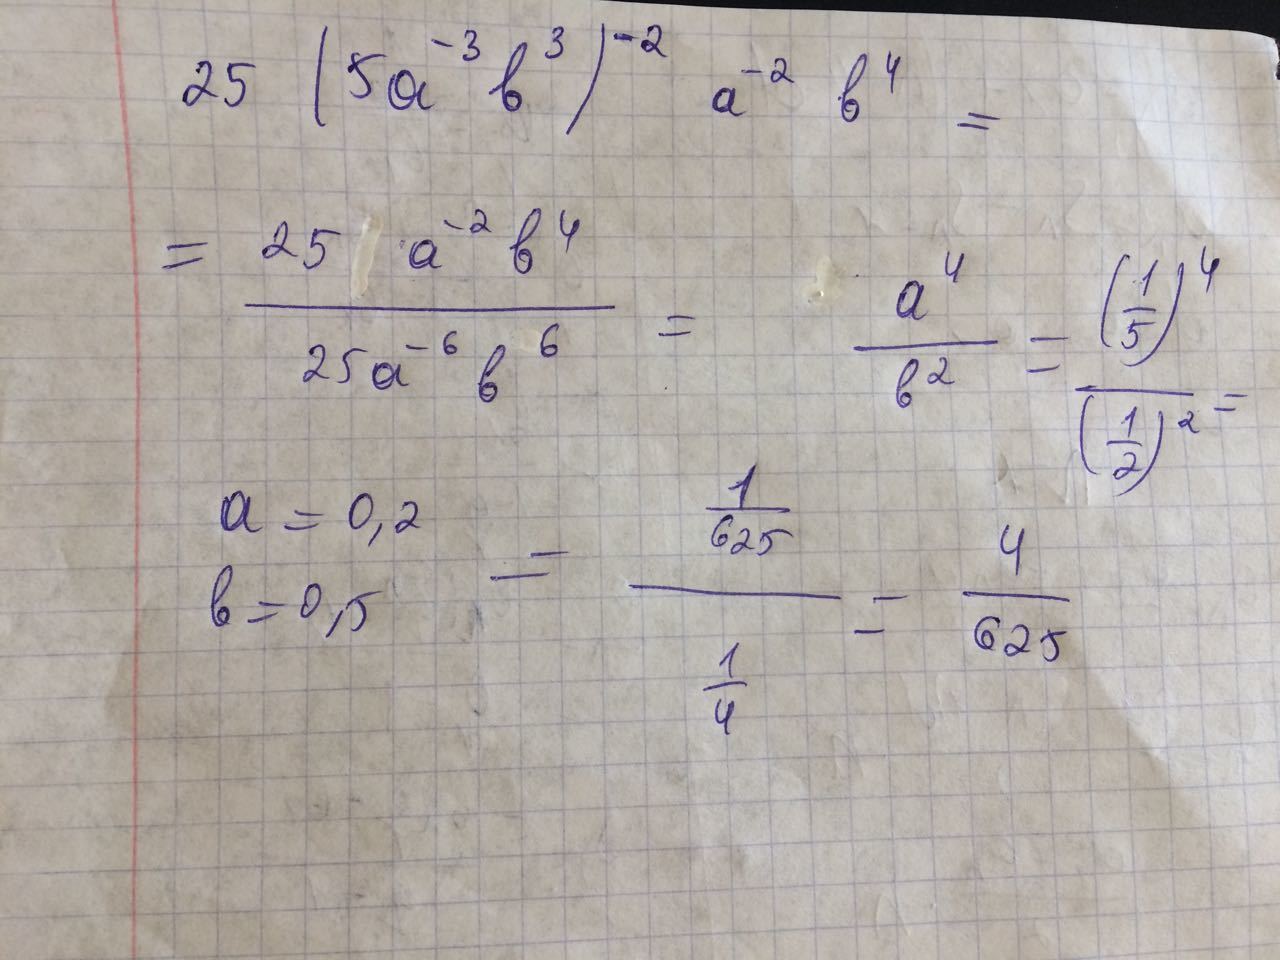 25 (5a⁻³ b³)⁻² a⁻² b⁴ =
= (25 a⁻² b⁴)/(25a⁻⁶ b⁶) = a⁴/b² = (1/5)⁴/(1/2)² =
a = 0,2
b = 0,5
= (1/625)/(1/4) = 4/625